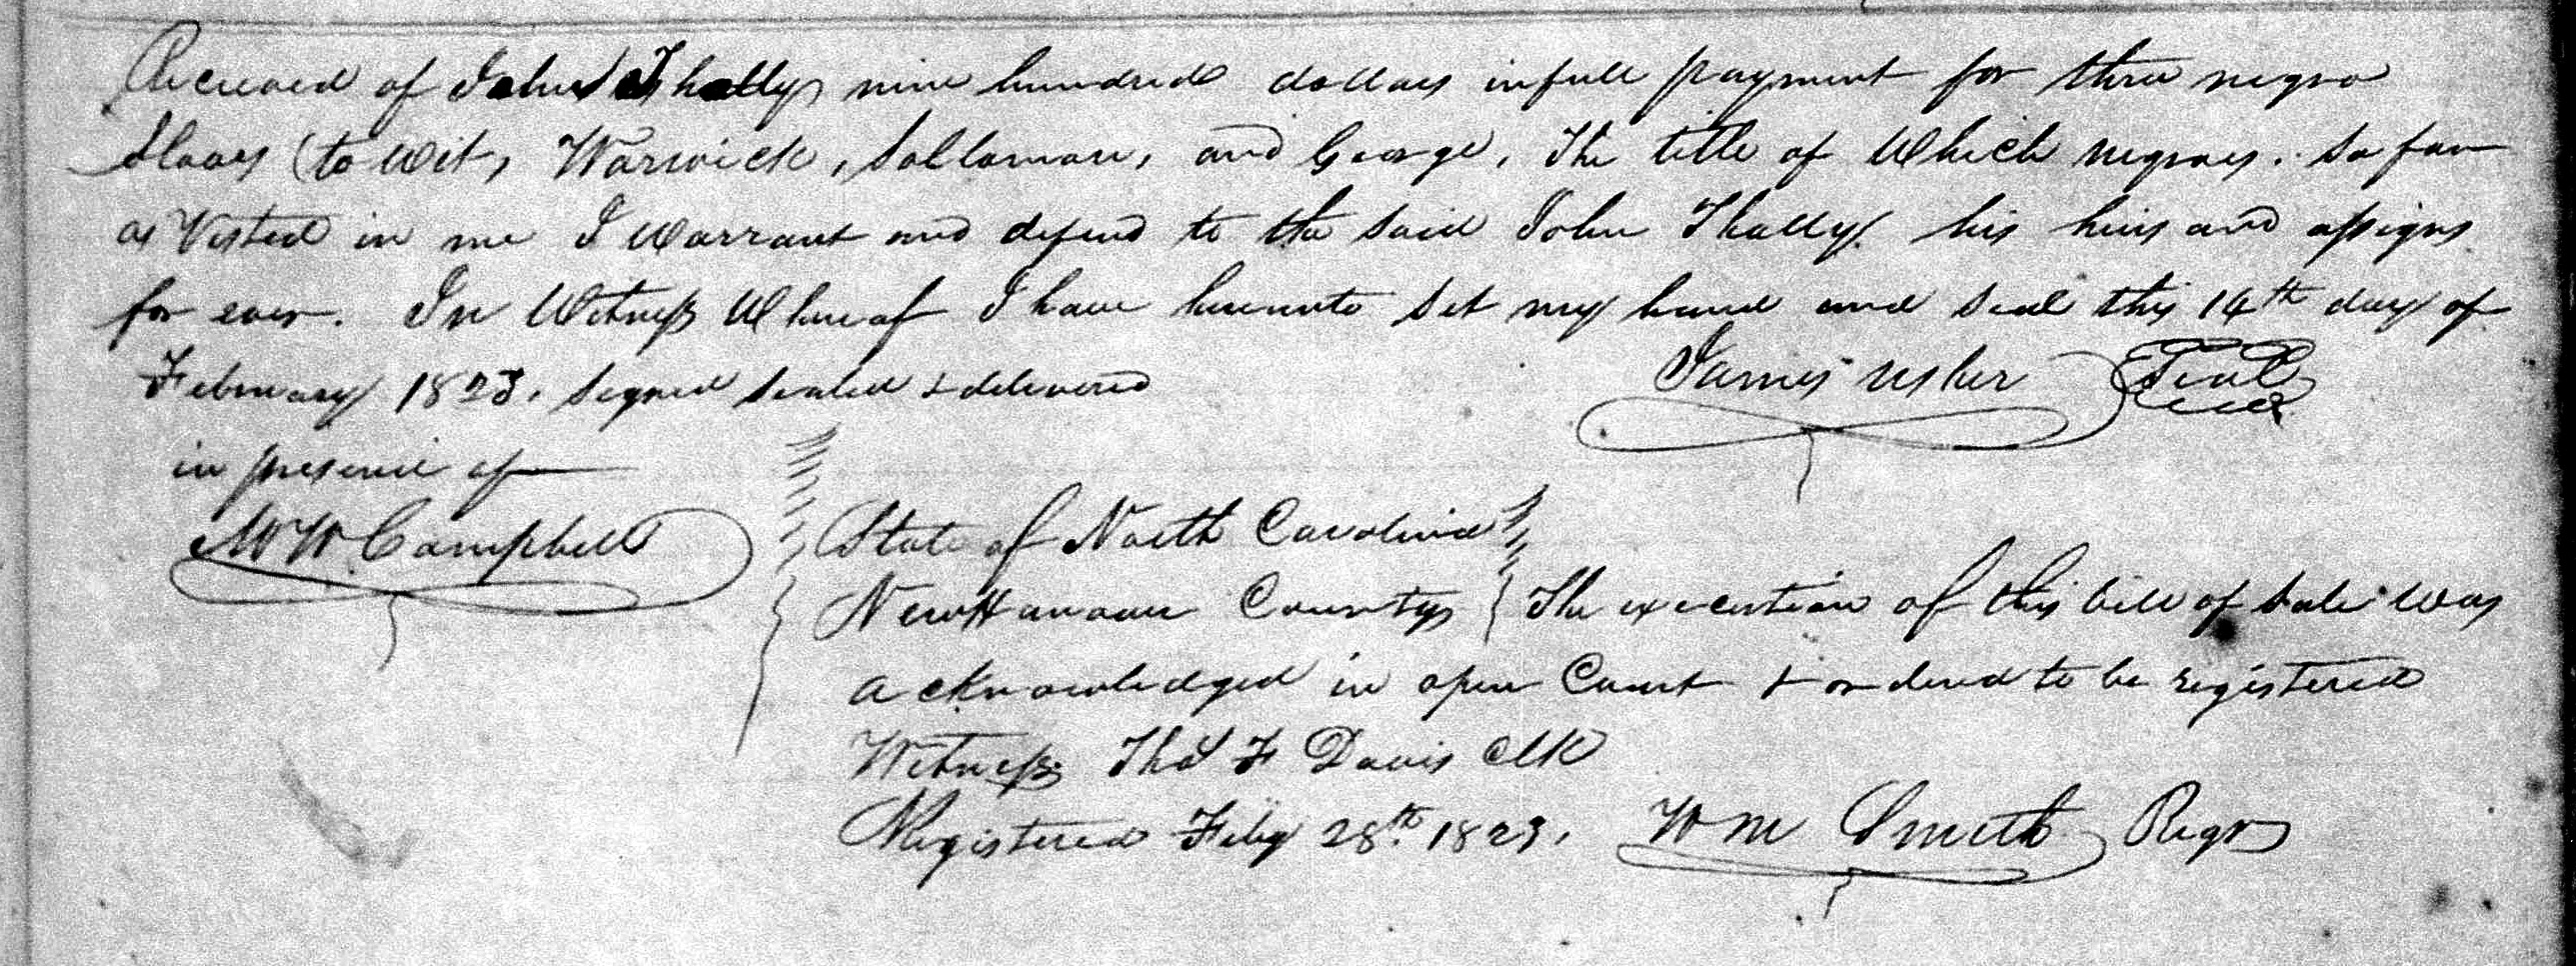 Received of John Thally nine hundred dollars in full payment for three negro
Slaves (to Wit, Warwick, Sollomon, and George, The title of Which negroes. So far
as Vested in me I Warrant and defend to the said John Thally his heirs and assigns
for ever. In Witness Whereof I have hereunto Set my hand and Seal this 14th day of
February 1823. Signed Sealed & delivered James Usher Seal
in presence of
M W Campbell
State of North Carolina
New Hanover County } The execution of this bill of Sale was
acknowledged in open Court & ordered to be registered
Witness Thos F Davis Clk
Registered Feby 28th 1823. Wm Smith Regr